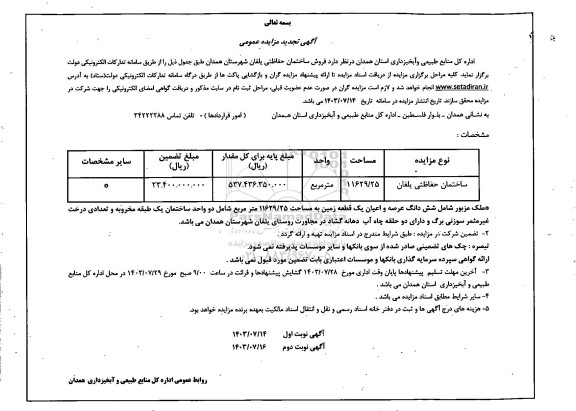 بسمه تعالی
آگهی تجدید مزایده عمومی
اداره کل منابع طبیعی وآبخیزداری استان همدان درنظر دارد فروش ساختمان حفاظتی یلفان شهرستان همدان طبق جدول ذیل را از طریق سامانه تدارکات الکترونیکی دولت
برگزار نماید. کلیه مراحل برگزاری مزایده از دریافت اسناد مزایده تا ارائه پیشنهاد مزایده گران و بازگشایی پاکت ها از طریق درگاه سامانه تدارکات الکترونیکی دولت(ستاد) به آدرس
www.setadiran.ir انجام خواهد شد و لازم است مزایده گران در صورت عدم عضویت قبلی، مراحل ثبت نام در سایت مذکور و دریافت گواهی امضای الکترونیکی را جهت شرکت در
مزایده محقق سازند. تاریخ انتشار مزایده در سامانه تاریخ ۱۴۰۳/۰۷/۱۴ می باشد.
به نشانی همدان - بلوار فلسطین - اداره کل منابع طبیعی و آبخیزداری استان همدان ( امور قراردادها ) - تلفن تماس ۳۴۲۲۲۲۸۸
مشخصات :
نوع مزایده مساحت واحد مبلغ پایه برای کل مقدار (ریال) مبلغ تضمین (ریال) سایر مشخصات
ساختمان حفاظتی یلفان ۱۱۶۲۹/۲۵ مترمربع ۵۳۷.۴۳۶.۳۵۰.۰۰۰ ۲۳.۴۰۰.۰۰۰.۰۰۰ *
*ملک مزبور شامل شش دانگ عرصه و اعیان یک قطعه زمین به مساحت ۱۱۶۲۹/۲۵ متر مربع شامل دو واحد ساختمان یک طبقه مخروبه و تعدادی درخت
غیرمثمر سوزنی برگ و دارای دو حلقه چاه آب دهانه گشاد در مجاورت روستای یلفان شهرستان همدان می باشد.
۲- تضمین شرکت در مزایده : طبق شرایط مندرج در اسناد مزایده تهیه و ارائه گردد.
تبصره : چک های تضمینی صادر شده از سوی بانکها و سایر موسسات پذیرفته نمی شود.
ارائه گواهی سپرده سرمایه گذاری بانکها و موسسات اعتباری بابت تضمین مورد قبول نمی باشد .
۳- آخرین مهلت تسلیم پیشنهادها پایان وقت اداری مورخ ۱۴۰۳/۰۷/۲۸ گشایش پیشنهادها و قرائت در ساعت ۹/۰۰ صبح مورخ ۱۴۰۳/۰۷/۲۹ در محل اداره کل منابع
طبیعی و آبخیزداری استان همدان می باشد .
۴- سایر شرایط مطابق اسناد مزایده می باشد .
۵- هزینه های درج آگهی ها و ثبت در دفتر خانه اسناد رسمی و نقل و انتقال اسناد مالکیت بعهده برنده مزایده خواهد بود.
آگهی نوبت اول ۱۴۰۳/۰۷/۱۴
آگهی نوبت دوم ۱۴۰۳/۰۷/۱۶
روابط عمومی اداره کل منابع طبیعی و آبخیزداری همدان